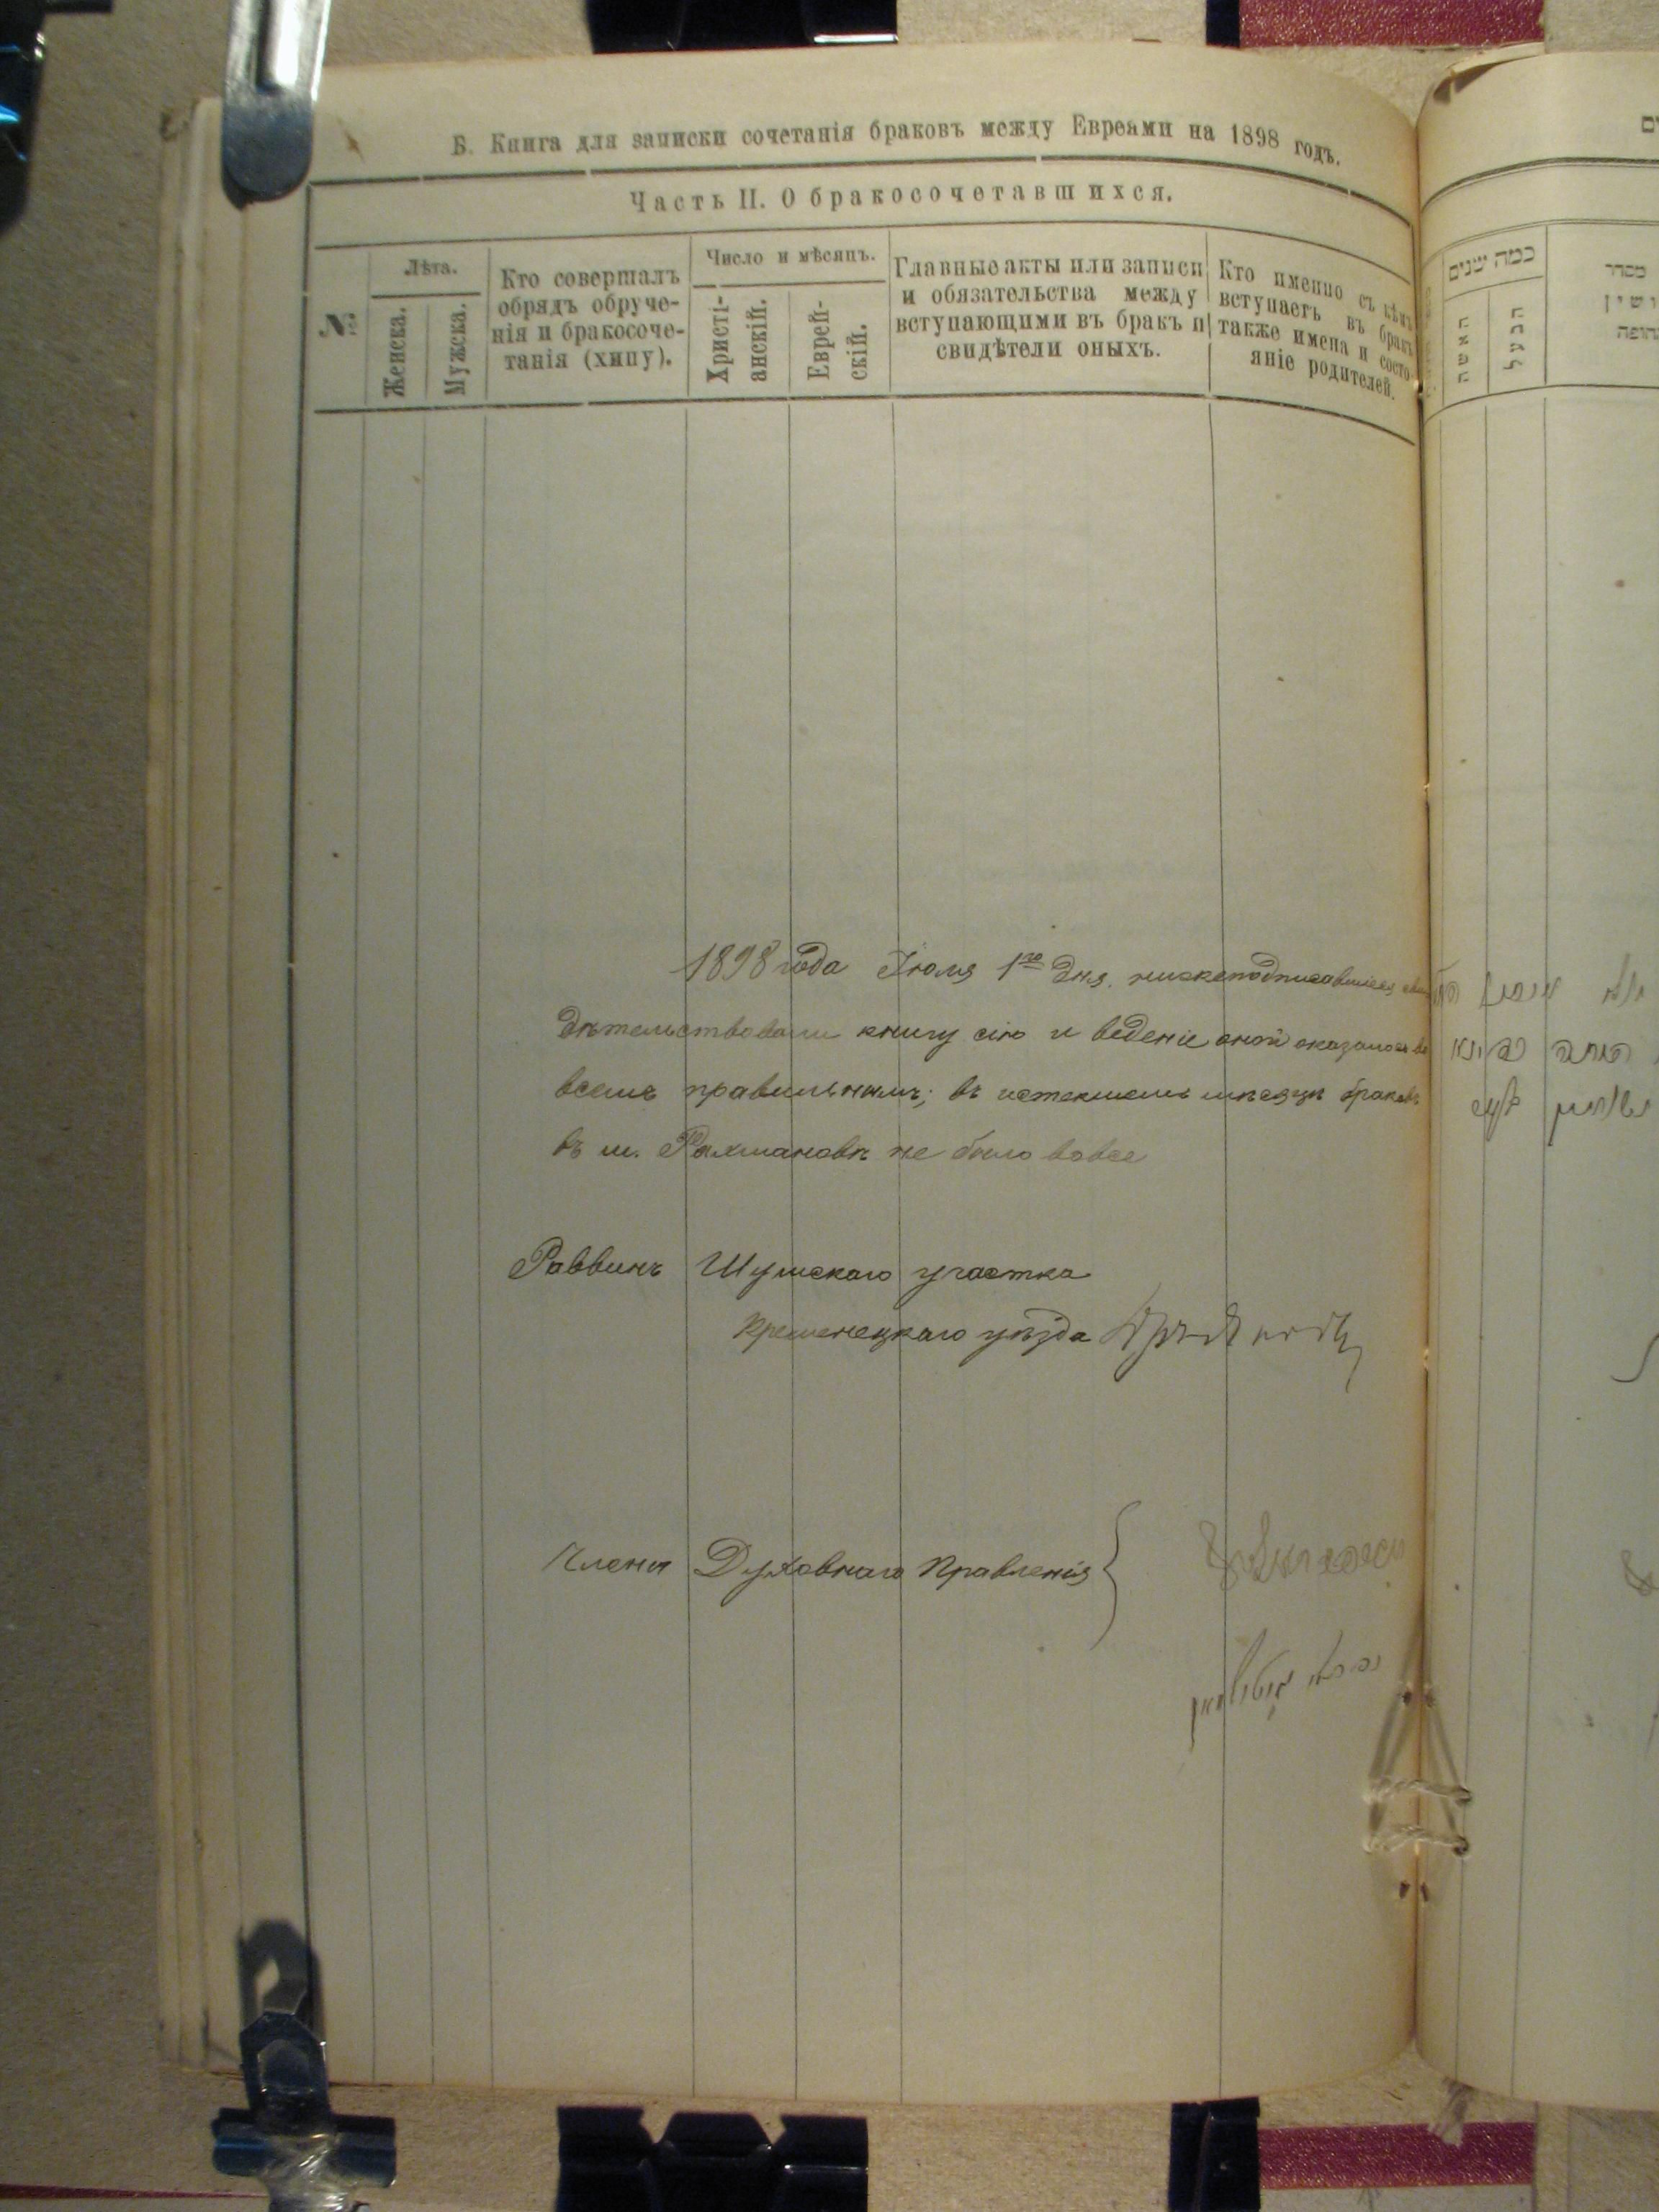 Б. Книга для записки сочетанія браковъ между Евреами на 1898 годъ.
Часть II. О бракосочетавшихся.
№
Лѣта.
Женска.
Мужска.
Кто совершалъ
обрядъ обруче-
нія и бракосоче-
танія (хипу).
Число и мѣсяцъ.
Христі-
анскій.
Еврей-
скій.
Главные акты или записи
и обязательства между
вступающими въ бракъ и
свидѣтели оныхъ.
Кто именно съ кѣмъ
вступаетъ въ бракъ
также имена и состо-
яніе родителей.
1898 года Іюля 1го дня, нижеподписавшіеся сви
дѣтельствовали книгу сію и веденіе оной оказалось во
всемъ правильнымъ; въ истекшемъ мѣсяцѣ браковъ
въ м. Рахмановкѣ не было вовсе
Раввинъ Шумскаго участка
Кременецкаго уѣзда
Члены Духовнаго Правленія
כמה שנים
האשה
הבעל
מסדר